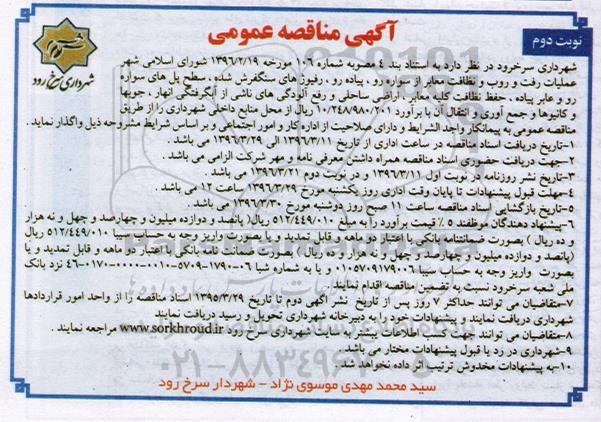 آگهی مناقصه عمومی
نوبت دوم
شهرداری سرخ رود
شهرداری سرخرود در نظر دارد به استناد بند ٤ مصوبه شماره ١٠٦ مورخه ١٣٩٦/٢/١٩ شورای اسلامی شهر
عملیات رفت و روب و نظافت معابر از سواره رو ، پیاده رو ، رفیوژ های سنگفرش شده ، سطح پل های سواره
رو و عابر پیاده ، حفظ نظافت کلیه معابر، اراضی ساحلی و رفع آلودگی های ناشی از آبگرفتگی انهار ، جویها
و کانیوها و جمع آوری و انتقال آن با برآورد ١٠/٢٤٨/٩٨٠/٢٠١ ریال از محل منابع داخلی شهرداری را از طریق
مناقصه عمومی به پیمانکار واجد الشرایط و دارای صلاحیت از اداره کار و امور اجتماعی و بر اساس شرایط مشروحه ذیل واگذار نماید .
١-تاریخ دریافت اسناد مناقصه در ساعت اداری از تاریخ ١٣٩٦/٣/١١ الی ١٣٩٦/٣/٢٩ می باشد .
٢-جهت دریافت حضوری اسناد مناقصه همراه داشتن معرفی نامه و مهر شرکت الزامی می باشد .
٣-تاریخ نشر روزنامه در نوبت اول ١٣٩٦/٣/١١ و در نوبت دوم ١٣٩٦/٣/٢١ می باشد .
٤-مهلت قبول پیشنهادات تا پایان وقت اداری روز یکشنبه مورخ ١٣٩٦/٣/٢٩ ساعت ١٢ می باشد .
٥-تاریخ بازگشایی اسناد مناقصه ساعت ١١ صبح روز دوشنبه مورخ ١٣٩٦/٣/٣٠ می باشد .
٦-پیشنهاد دهندگان موظفند ٥ ٪ قیمت برآورد را به مبلغ ٥١٢/٤٤٩/٠١٠ ریال( پانصد و دوازده میلیون و چهارصد و چهل و نه هزار
و ده ریال ) بصورت ضمانتنامه بانکی با اعتبار دو ماهه و قابل تمدید و یا بصورت واریز وجه به حساب سیبا ٥١٢/٤٤٩/٠١٠ ریال
(پانصد و دوازده میلیون و چهارصد و چهل و نه هزار و ده ریال ) بصورت ضمانت نامه بانکی با اعتبار دو ماهه و قابل تمدید و یا
بصورت واریز وجه به حساب سیبا ٠١٠٥٧٠٩١٧٩٠٠٦ و یا به شماره شبا ٠٦-١٧٩٠-٥٧٠٩-٠٠١٠-٠٠٠٠-٠١٧٠-٤٦ نزد بانک
ملی شعبه سرخرود نسبت به تضمین مناقصه اقدام نمایند.
٧-متقاضیان می توانند حداکثر ٧ روز پس از تاریخ نشر آگهی دوم تا تاریخ ١٣٩٥/٣/٢٩ اسناد مناقصه را از واحد امور قراردادها
شهرداری دریافت نمایند و پیشنهادات خود را به دبیرخانه شهرداری تحویل و رسید دریافت نمایند
٨-متقاضیان می توانند جهت کسب اطلاعات بیشتر به سایت شهرداری سرخ رود www.sorkhroud.ir مراجعه نمایند .
٩-شهرداری در رد یا قبول پیشنهادات مختار می باشد .
١٠-به پیشنهادات مخدوش ترتیب اثر داده نخواهد شد .
سید محمد مهدی موسوی نژاد - شهردار سرخ رود